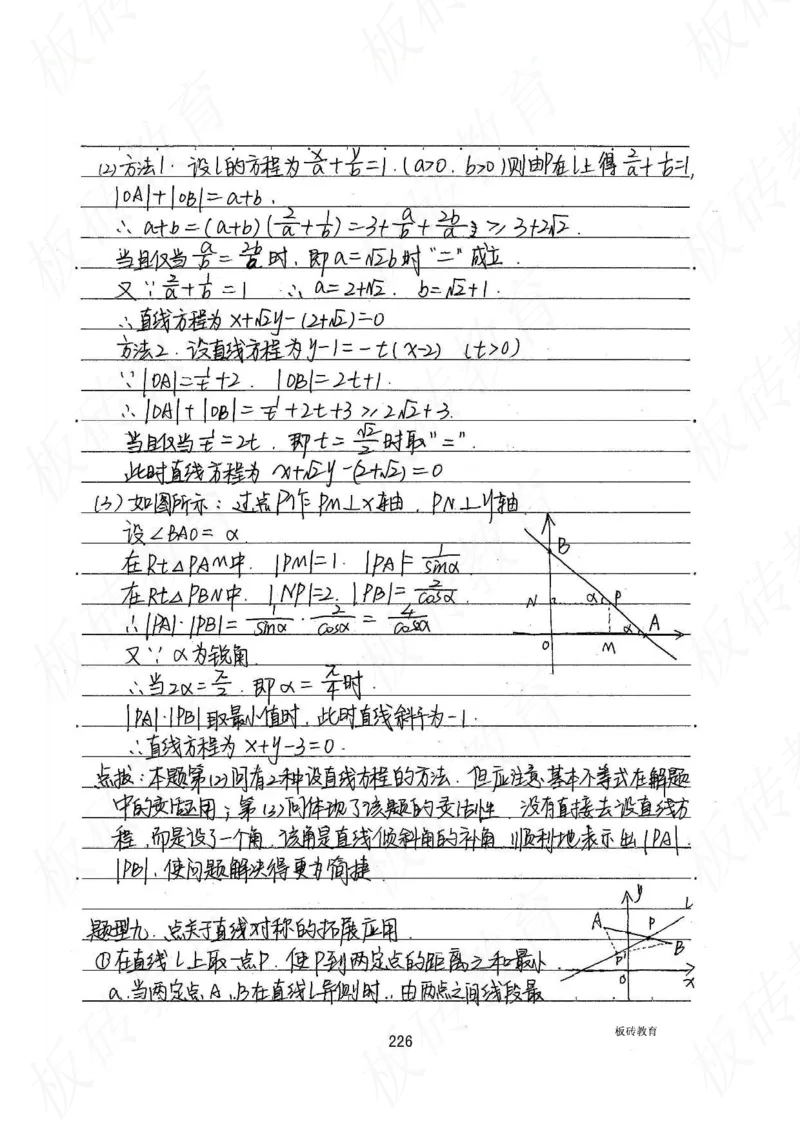 (2)方法1. 设l的方程为x/a+y/b=1.(a>0. b>0)则由P在l上得2/a+1/b=1,
|OA|+|OB|=a+b.
∴ a+b=(a+b)(2/a+1/b)=3+a/b+2b/a≥3+2√2.
当且仅当a/b=2b/a时,即a=√2b时"="成立.
又∵2/a+1/b=1 ∴a=2+√2. b=√2+1.
∴直线方程为x+√2y-(2+√2)=0
方法2. 设直线方程为y-1=-t(x-2) (t>0)
∵|OA|=1/t+2. |OB|=2t+1.
∴|OA|+|OB|=1/t+2t+3≥2√2+3.
当且仅当1/t=2t.即t=√2/2时取"=".
此时直线方程为x+√2y-(2+√2)=0
(3)如图所示:过点P作PM⊥x轴.PN⊥y轴
设∠BAO=α.
在Rt△PAM中.|PM|=1.|PA|=1/sinα
在Rt△PBN中.|NP|=2.|PB|=2/cosα.
∴|PA|·|PB|=1/sinα·2/cosα=4/
又∵α为锐角.
∴当2α=π/2.即α=π/4时.
|PA|·|PB|取最小值时,此时直线斜千为-1.
∴直线方程为x+y-3=0.
B
N
α
P
α
A
O
M
点拨:本题第(2)问有2种设直线方程的方法.但应注意基本不等式在解题
中的灵活运用;第(3)问体现了该题的灵活性.没有直接去设直线方
程,而是设了一个角.该角是直线倾斜角的补角.顺利地表示出|PA|.
|PB|,使问题解决得更为简捷.
题型九.点关于直线对称的拓展应用.
①在直线l上取一点P.使P到两定点的距离之和最小.
a.当两定点A、B在直线l异侧时.由两点之间线段最
y
L
A
P
B
P'
O
x
226
板砖教育
板砖教育